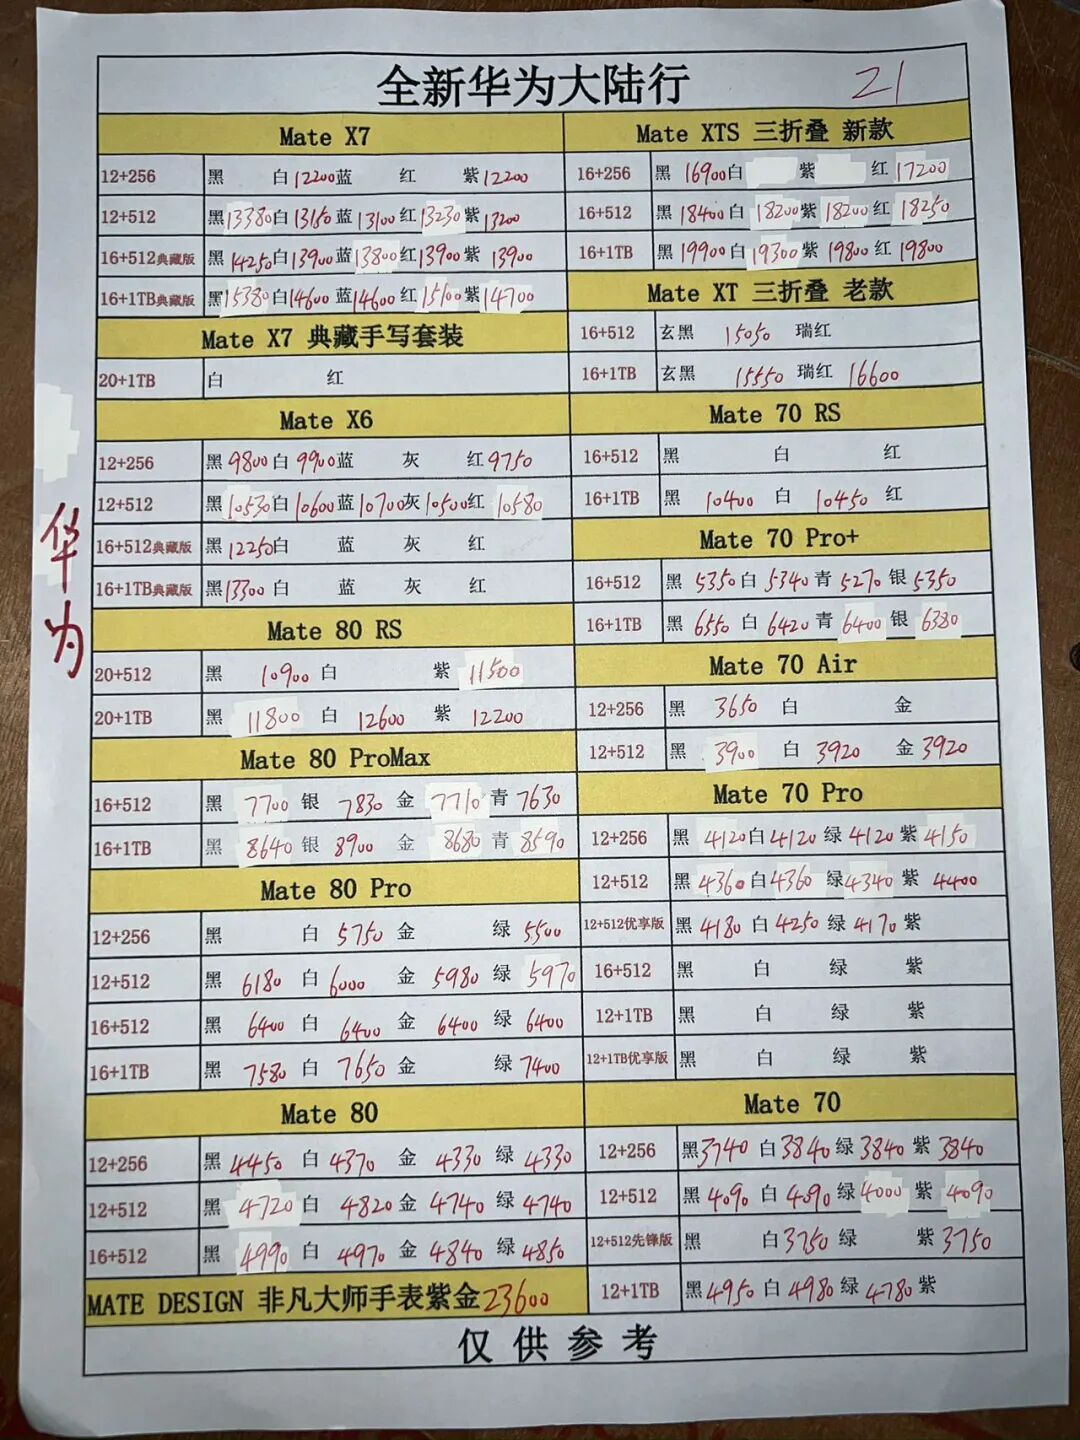 全新华为大陆行 21
华为
Mate X7
12+256 黑 白12200蓝 红 紫12200
12+512 黑13380白13150蓝13100红13230紫13200
16+512典藏版 黑14250白13900蓝13800红13900紫13900
16+1TB典藏版 黑15380白14600蓝14600红15100紫14700
Mate X7 典藏手写套装
20+1TB 白 红
Mate X6
12+256 黑9800白9900蓝 灰 红9750
12+512 黑10530白10600蓝10700灰10500红10580
16+512典藏版 黑12250白 蓝 灰 红
16+1TB典藏版 黑13300白 蓝 灰 红
Mate 80 RS
20+512 黑 10900 白 紫 11500
20+1TB 黑 11800 白 12600 紫 12200
Mate 80 ProMax
16+512 黑 7700 银 7830 金 7710 青 7630
16+1TB 黑 8640 银 8900 金 8680 青 8590
Mate 80 Pro
12+256 黑 白 5750 金 绿 5500
12+512 黑 6180 白 6000 金 5980 绿 5970
16+512 黑 6400 白 6400 金 6400 绿 6400
16+1TB 黑 7580 白 7650 金 绿 7400
Mate 80
12+256 黑 4450 白 4370 金 4330 绿 4330
12+512 黑 4720 白 4820 金 4740 绿 4740
16+512 黑 4990 白 4970 金 4840 绿 4850
MATE DESIGN 非凡大师手表紫金23600
Mate XTS 三折叠 新款
16+256 黑 16900白 紫 红 17200
16+512 黑 18400 白 18200紫 18200 红 18250
16+1TB 黑 19900 白 19300 紫 19800 红 19800
Mate XT 三折叠 老款
16+512 玄黑 15050 瑞红
16+1TB 玄黑 15550 瑞红 16600
Mate 70 RS
16+512 黑 白 红
16+1TB 黑 10400 白 10450 红
Mate 70 Pro+
16+512 黑 5350白 5340 青 5270 银 5350
16+1TB 黑 6550 白 6420 青 6400 银 6380
Mate 70 Air
12+256 黑 3650 白 金
12+512 黑 3900 白 3920 金 3920
Mate 70 Pro
12+256 黑 4120白 4120 绿 4120 紫 4150
12+512 黑 4360白 4360 绿 4340 紫 4400
12+512优享版 黑 4180 白 4250 绿 4170 紫
16+512 黑 白 绿 紫
12+1TB 黑 白 绿 紫
12+1TB优享版 黑 白 绿 紫
Mate 70
12+256 黑3740 白3840绿3840紫3840
12+512 黑 4090 白 4090绿4000 紫 4090
12+512先锋版 黑 白3750绿 紫3750
12+1TB 黑4950白 4980绿 4780紫
仅供参考